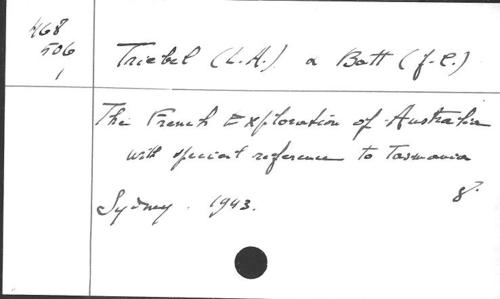 468
506
1
Triebel (L.A.) a Batt (J.C.)
The French Exploration of Australia
with special reference to Tasmania
Sydney. 1943. 8º